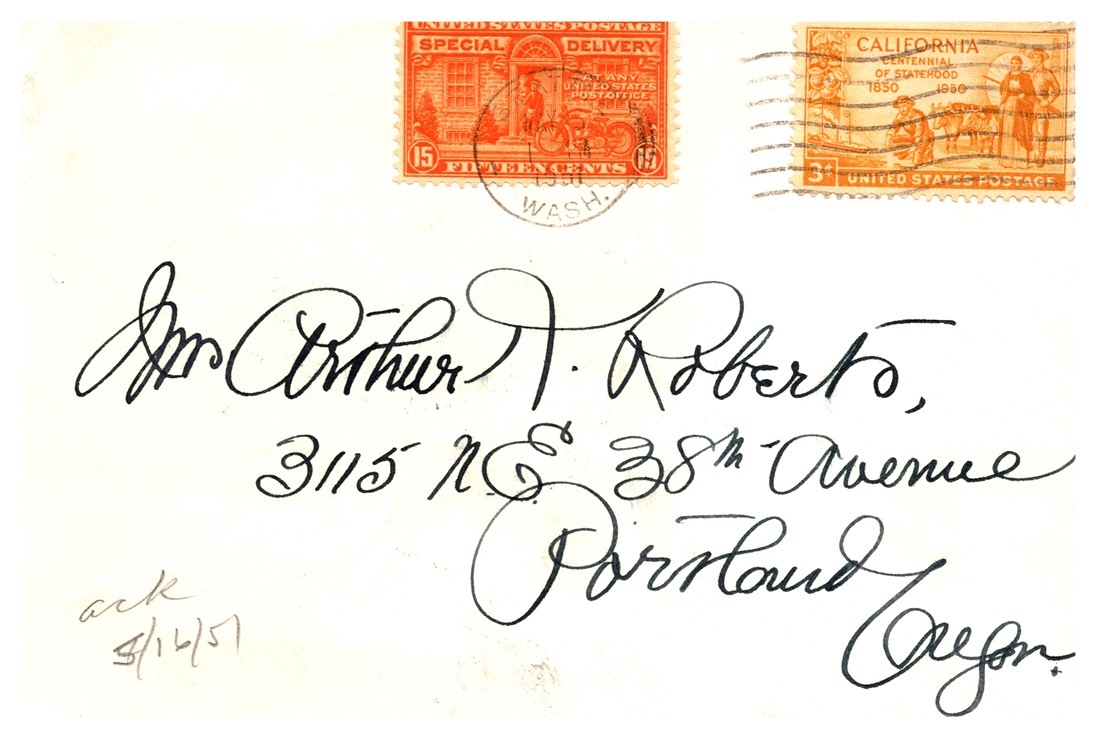 UNITED STATES POSTAGE
SPECIAL DELIVERY
AT ANY
UNITED STATES
POST OFFICE
15
FIFTEEN CENTS
1951
WASH.
CALIFORNIA
CENTENNIAL
OF STATEHOOD
1850 1950
3¢ UNITED STATES POSTAGE
Mrs Arthur J. Roberts,
3115 N.E. 38th Avenue
Portland
Oregon.
ack
5/16/51